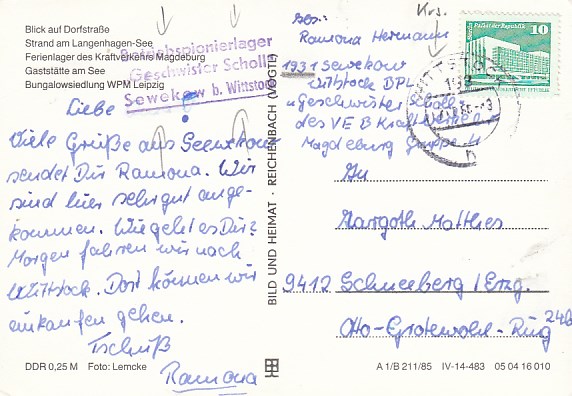 Blick auf Dorfstraße
Strand am Langenhagen-See
Ferienlager des Kraftverkehrs Magdeburg
Gaststätte am See
Bungalowsiedlung WPM Leipzig
Betriebspionierlager
Geschwister Scholl
Sewekow b. Wittstock
Liebe
Viele Grüße aus Seewekow
sendet Dir Ramona. Wir
sind hier sehr gut ange-
kommen. Wie geht es Dir?
Morgen fahren wir nach
Wittstock. Dort können wir
einkaufen gehen.
Tschüß
Ramona
DDR 0,25 M Foto: Lemcke
BILD UND HEIMAT · REICHENBACH (VOGTL)
Krs.
Abs.:
Ramona Hermann
1931 Sewekow
Wittstock BPL
"Geschwister Scholl"
des VEB Kraftverkehr
Magdeburg Gruppe 4
10
An
Margoth Matthes
9412 Schneeberg/Erzg.
Otto-Grotewohl-Ring 24b
A 1/B 211/85 IV-14-483 05 04 16 010